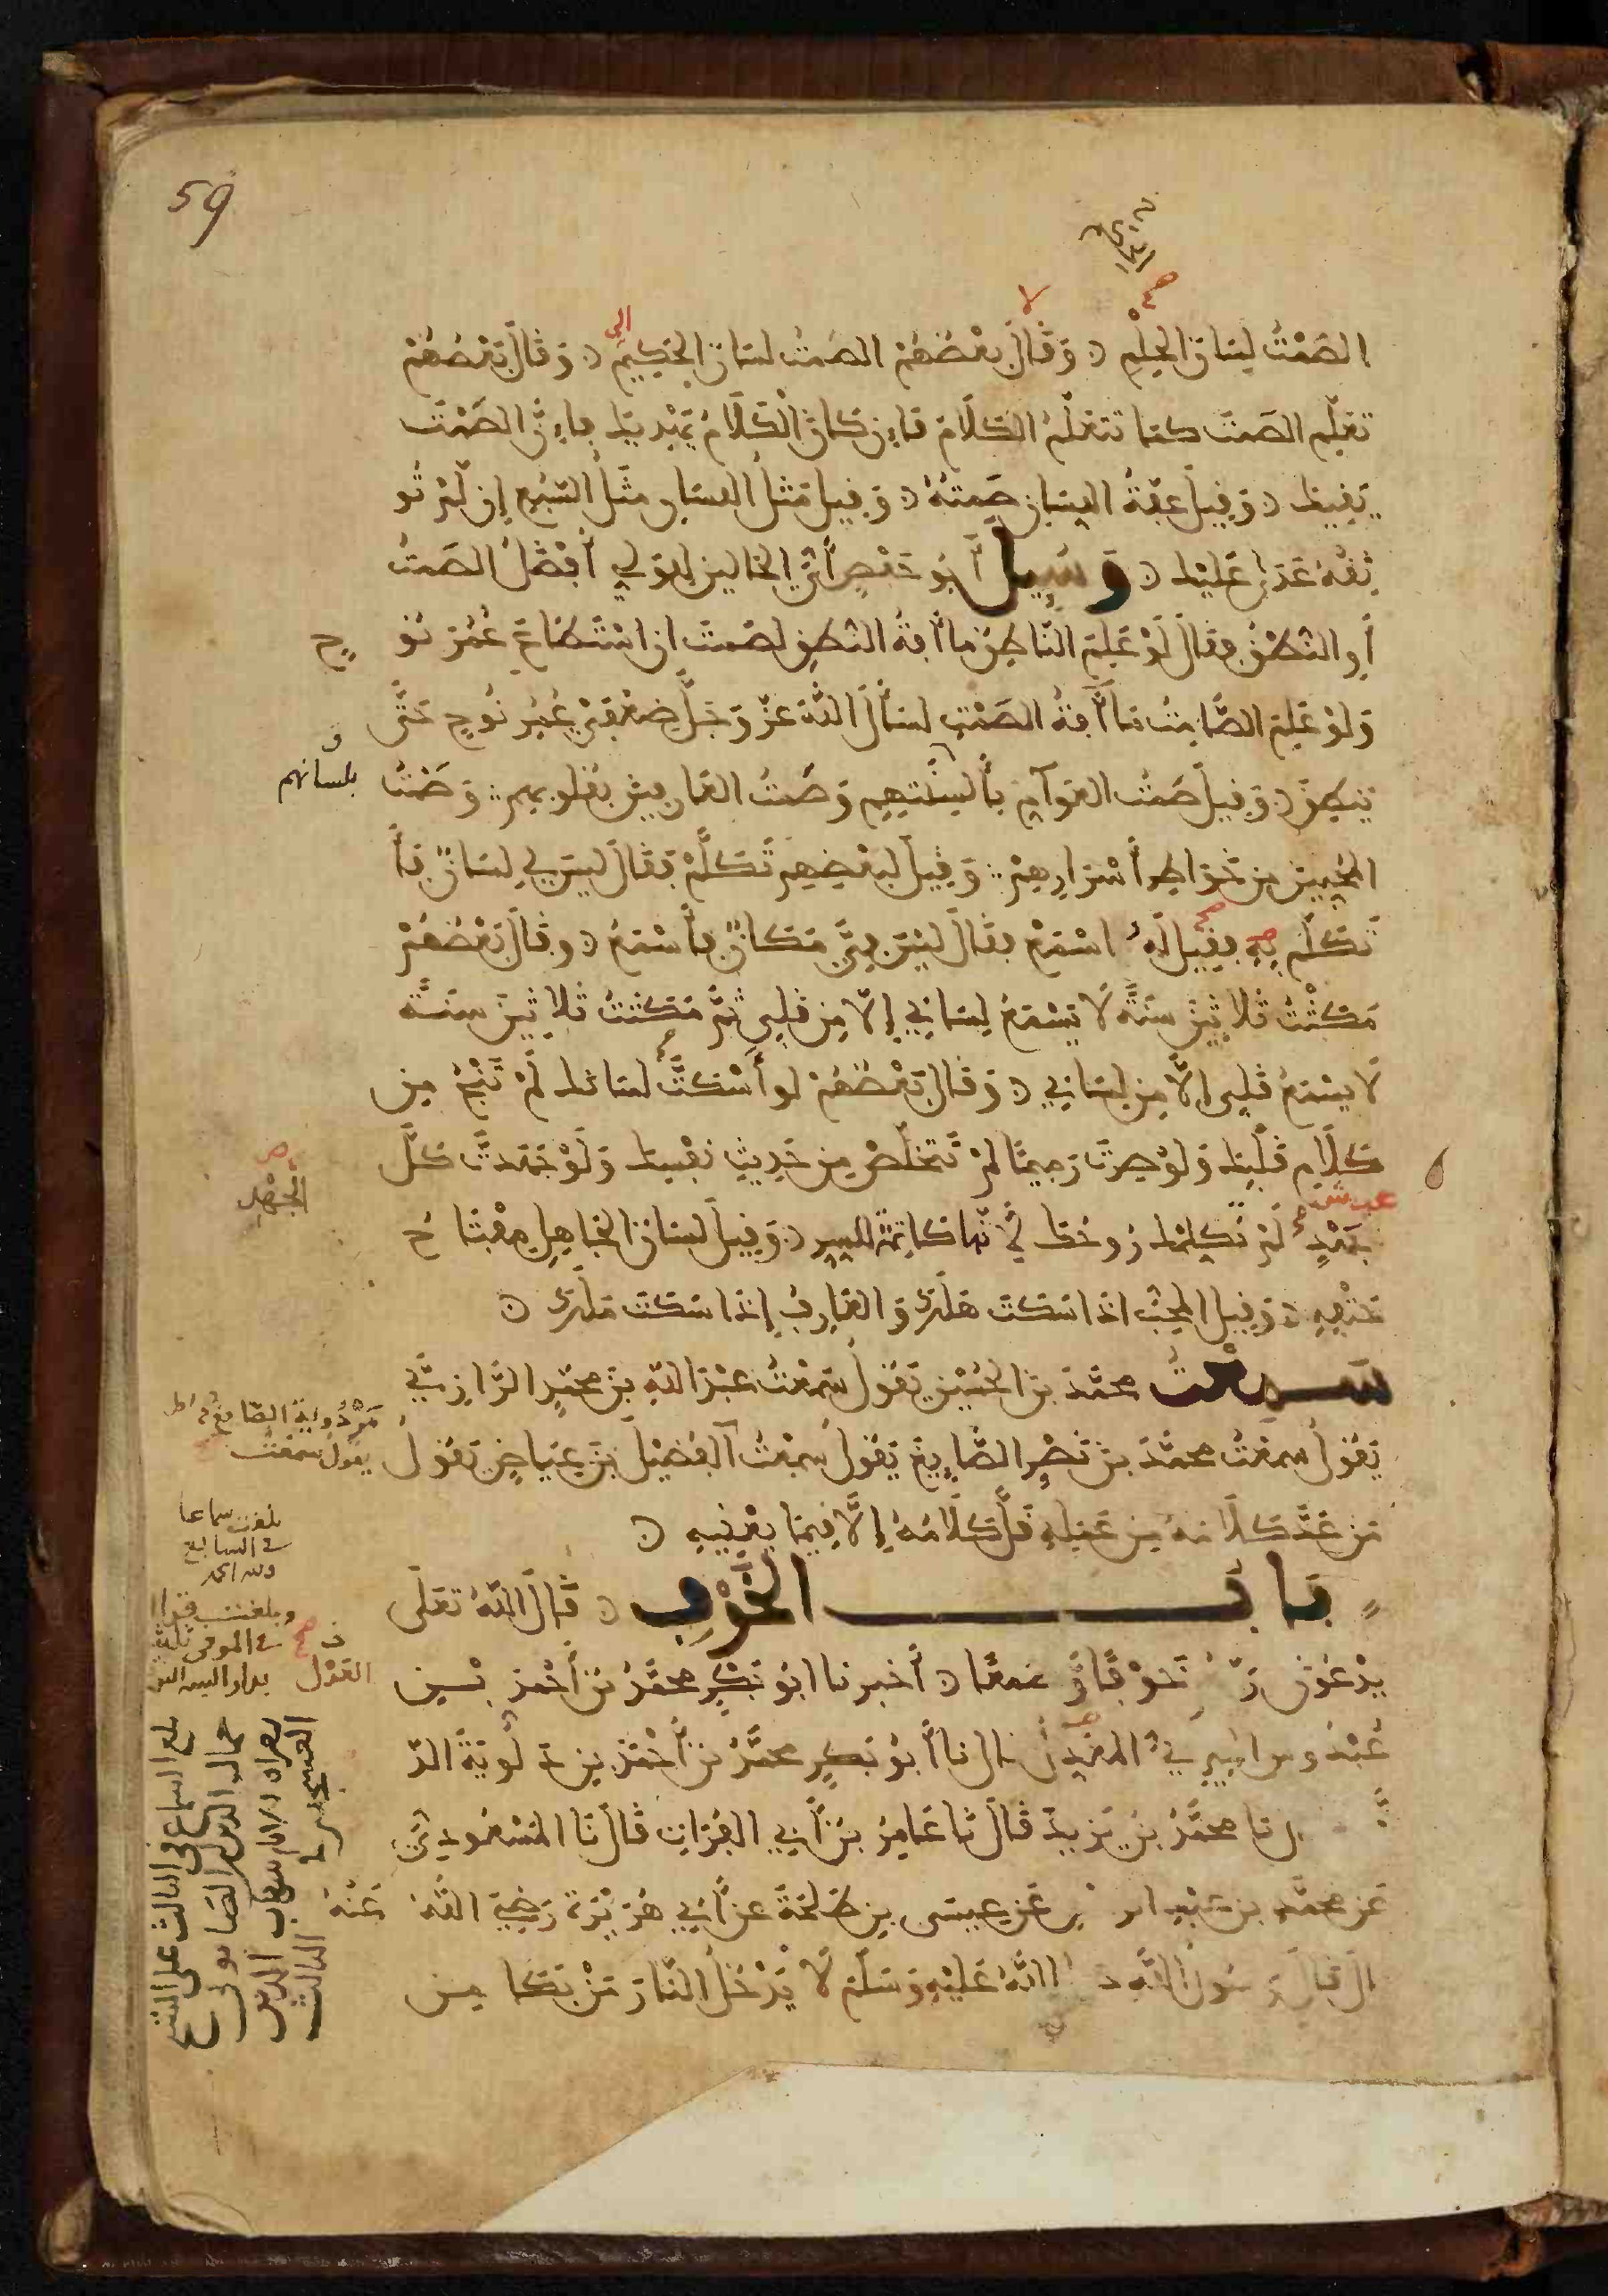 59
الصَّمْتُ لِسَانُ الْحِلْمِ وَقَالَ بعْضُهُمْ الصَمْتُ لسَان الْحَكِيمِ وَقَالَ بَعْضُهُمْ
تعَلّم الصَمتَ كمَا تتعَلَّمُ الكلَامَ فَإِن كَانَ الْكَلَامُ يَهْدِيكَ فإِنَّ الصَّمْتَ
يَقِيكَ وَقِيلَ عِفّةُ اللِّسَانِ صَمتهُ وَقِيلَ مَثَلُ اللِّسَانِ مثَلُ السَّبُعِ إِن لَمْ تُو
ثِقْهُ عَدَا عَلَيْكَ وَسُئِلَ أَبُو حَفْصٍ أَيُّ الْحَالَيْنِ لِلْوَلِي أَفْضَلُ الصَمتُ
أَوِ النُّطْقُ فقالَ لَوْ عَلِمَ النَّاطِقُ مَا آفةُ النُّطْقِ لصَمتَ ان اسْتَطَاعَ عُمُرَ نُو
حٍ
وَلَوْ عَلِمَ الصَّامِتُ مَا آفةُ الصَمْتِ لسَأَلَ اللَّهَ عَزَّ وَجَلَّ ضِعْفَيْ عُمُرِ نُوحٍ حَتَّى
يَنطِقَ وَقِيلَ صَمْتُ العَوَامِ بأَلْسِنَتِهِم وَصَمْتُ العَارِفِينَ بقُلُوبِهِم وَصَمْتُ
بلسانهم
المُحِبِّينَ مِن خَوَاطِرِ أَسْرَارِهِمْ وَقِيلَ لبَعْضِهِمْ تَكَلَّمْ فَقَالَ لَيْسَ لِي لِسَانٌ فَأَ
تَكَلَّم بِهِ فقِيلَ لَهُ اسْمَعْ فقَالَ لَيْسَ فِيَّ مَكَانٌ فأَسْمَعُ وقَالَ بَعْضُهُمْ
مَكَثْتُ ثَلاثِينَ سنَةً لَا يَسْمَعُ لِسَانِي إِلَّا مِن قَلْبِي ثُمَّ مَكَثتُ ثَلاثِينَ سنَةً
لا يسْمَعُ قَلْبِي إِلَّا مِن لِسَانِي وَقَالَ بَعْضُهُمْ لو أَسْكَتَّ لسَانكَ لَمْ تَنْجُ مِن
كَلَامِ قَلْبِكَ وَلَوْ صِرْتَ رَمِيمًا لَمْ تَتَخَلَّصْ مِن حَدِيثِ نفْسِكَ وَلَوْ جَهَدتَّ كُلَّ
الْجَهْدِ
جَهْدٍ لَمْ تُكلِّمْكَ رُوحُكَ لِأَنَّهَا كَاتِمَةٌ للسِّرِ وَقِيلَ لسَانُ الْجَاهِلِ مِفْتَاحُ
حَتْفِهِ وَقِيلَ المُحِبُّ اذَا سَكَتَ هَلَكَ وَالعَارِفُ إِذَا سَكَتَ مَلَكَ
سَمِعْتُ محمَّدَ بنَ الْحُسَيْنِ يَقُولُ سَمِعْتُ عَبْدَ اللَّهِ بنَ محمَّدٍ الرَّازِيَّ
يَقُولُ سَمِعْتُ محمَّدَ بنَ نَصْرٍ الصَّايِغَ يَقُولُ سَمِعْتُ الفُضَيْلَ بنَ عِيَاضٍ يَقُولُ
مَرْدُويَةَ الصَّايغَ
يقولُ سَمعْتُ
مَن عَدَّ كَلَامَهُ مِن عَمَلِهِ قَلَّ كَلَامُهُ إِلَّا فِيمَا يَعْنِيهِ
بَابُ الْخَوْفِ قَالَ اللَّهُ تعَلَى
يَدْعُونَ رَبَّهُمْ خَوْفًا وَطَمَعًا أخبرنا ابُو بَكْرٍ محمَّدُ بنُ أَحْمَدَ بْنِ
عَبْدُوسٍ الْحِيرِيُّ المُعَدِّلُ قال نا أَبُو بَكرٍ محمَّدُ بنُ أَحْمَدَ بنِ دَلُّويَةَ الدَّ
قَّاقُ نا محمَّدُ بنُ يَزِيدَ قَالَ نَا عَامِرُ بنُ أَبِي الفُرَاتِ قَالَ نَا المَسْعُودِيُّ
عَن محمَّدِ بنِ عَبْدِ الرحمن عَن عِيسَى بنِ طَلْحَةَ عَن أَبِي هُرَيْرَةَ رَضِيَ اللَّهُ عَنْهُ
قَالَ قَالَ رَسُولُ اللَّهِ صلى اللَّهُ عَلَيْهِ وَسَلَّمَ لَا يَدْخُلُ النَّارَ مَنْ بَكَا مِن
بلغت سماعا
في السابع
ولله الحمد
وبلغت قراءة
القَوْل
بلغ السماع في الثالث على الشيخ
جمال الدين الصابوني